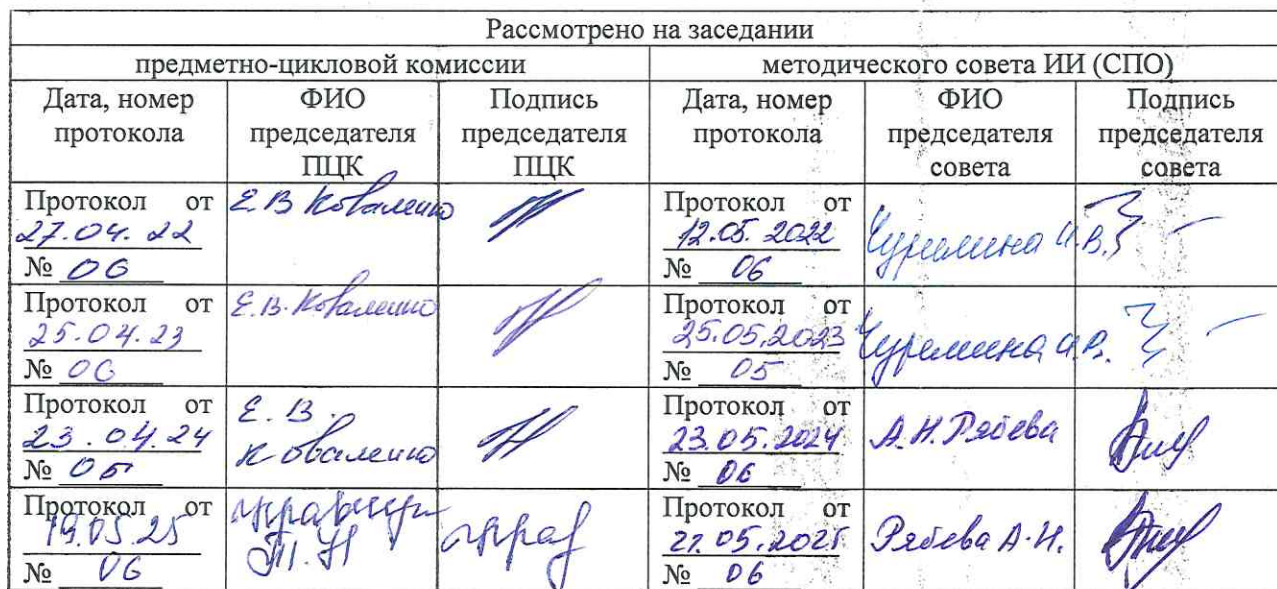 Рассмотрено на заседании
предметно-цикловой комиссии
методического совета ИИ (СПО)
Дата, номер протокола
ФИО председателя ПЦК
Подпись председателя ПЦК
Дата, номер протокола
ФИО председателя совета
Подпись председателя совета
Протокол от
27.04.22
№ 06
Е.В Коваленко
Протокол от
12.05.2022
№ 06
Чурилина И.В.
Протокол от
25.04.23
№ 06
Е.В. Коваленко
Протокол от
25.05.2023
№ 05
Чурилина И.В.
Протокол от
23.04.24
№ 05
Е. В.
Коваленко
Протокол от
23.05.2024
№ 06
А.Н. Рябева
Протокол от
19.05.25
№ 06
Т.Н
Протокол от
27.05.2025
№ 06
Рябева А.Н.